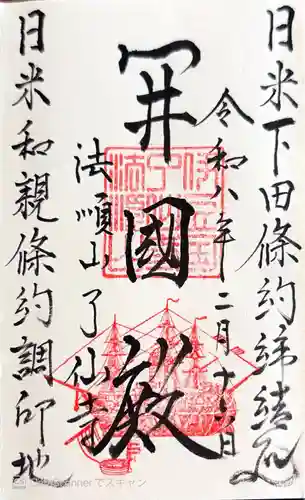 日米下田條約締結処
令和八年二月十六日
開國
法順山了仙寺
日米和親條約調印地
CamScanner でスキャン